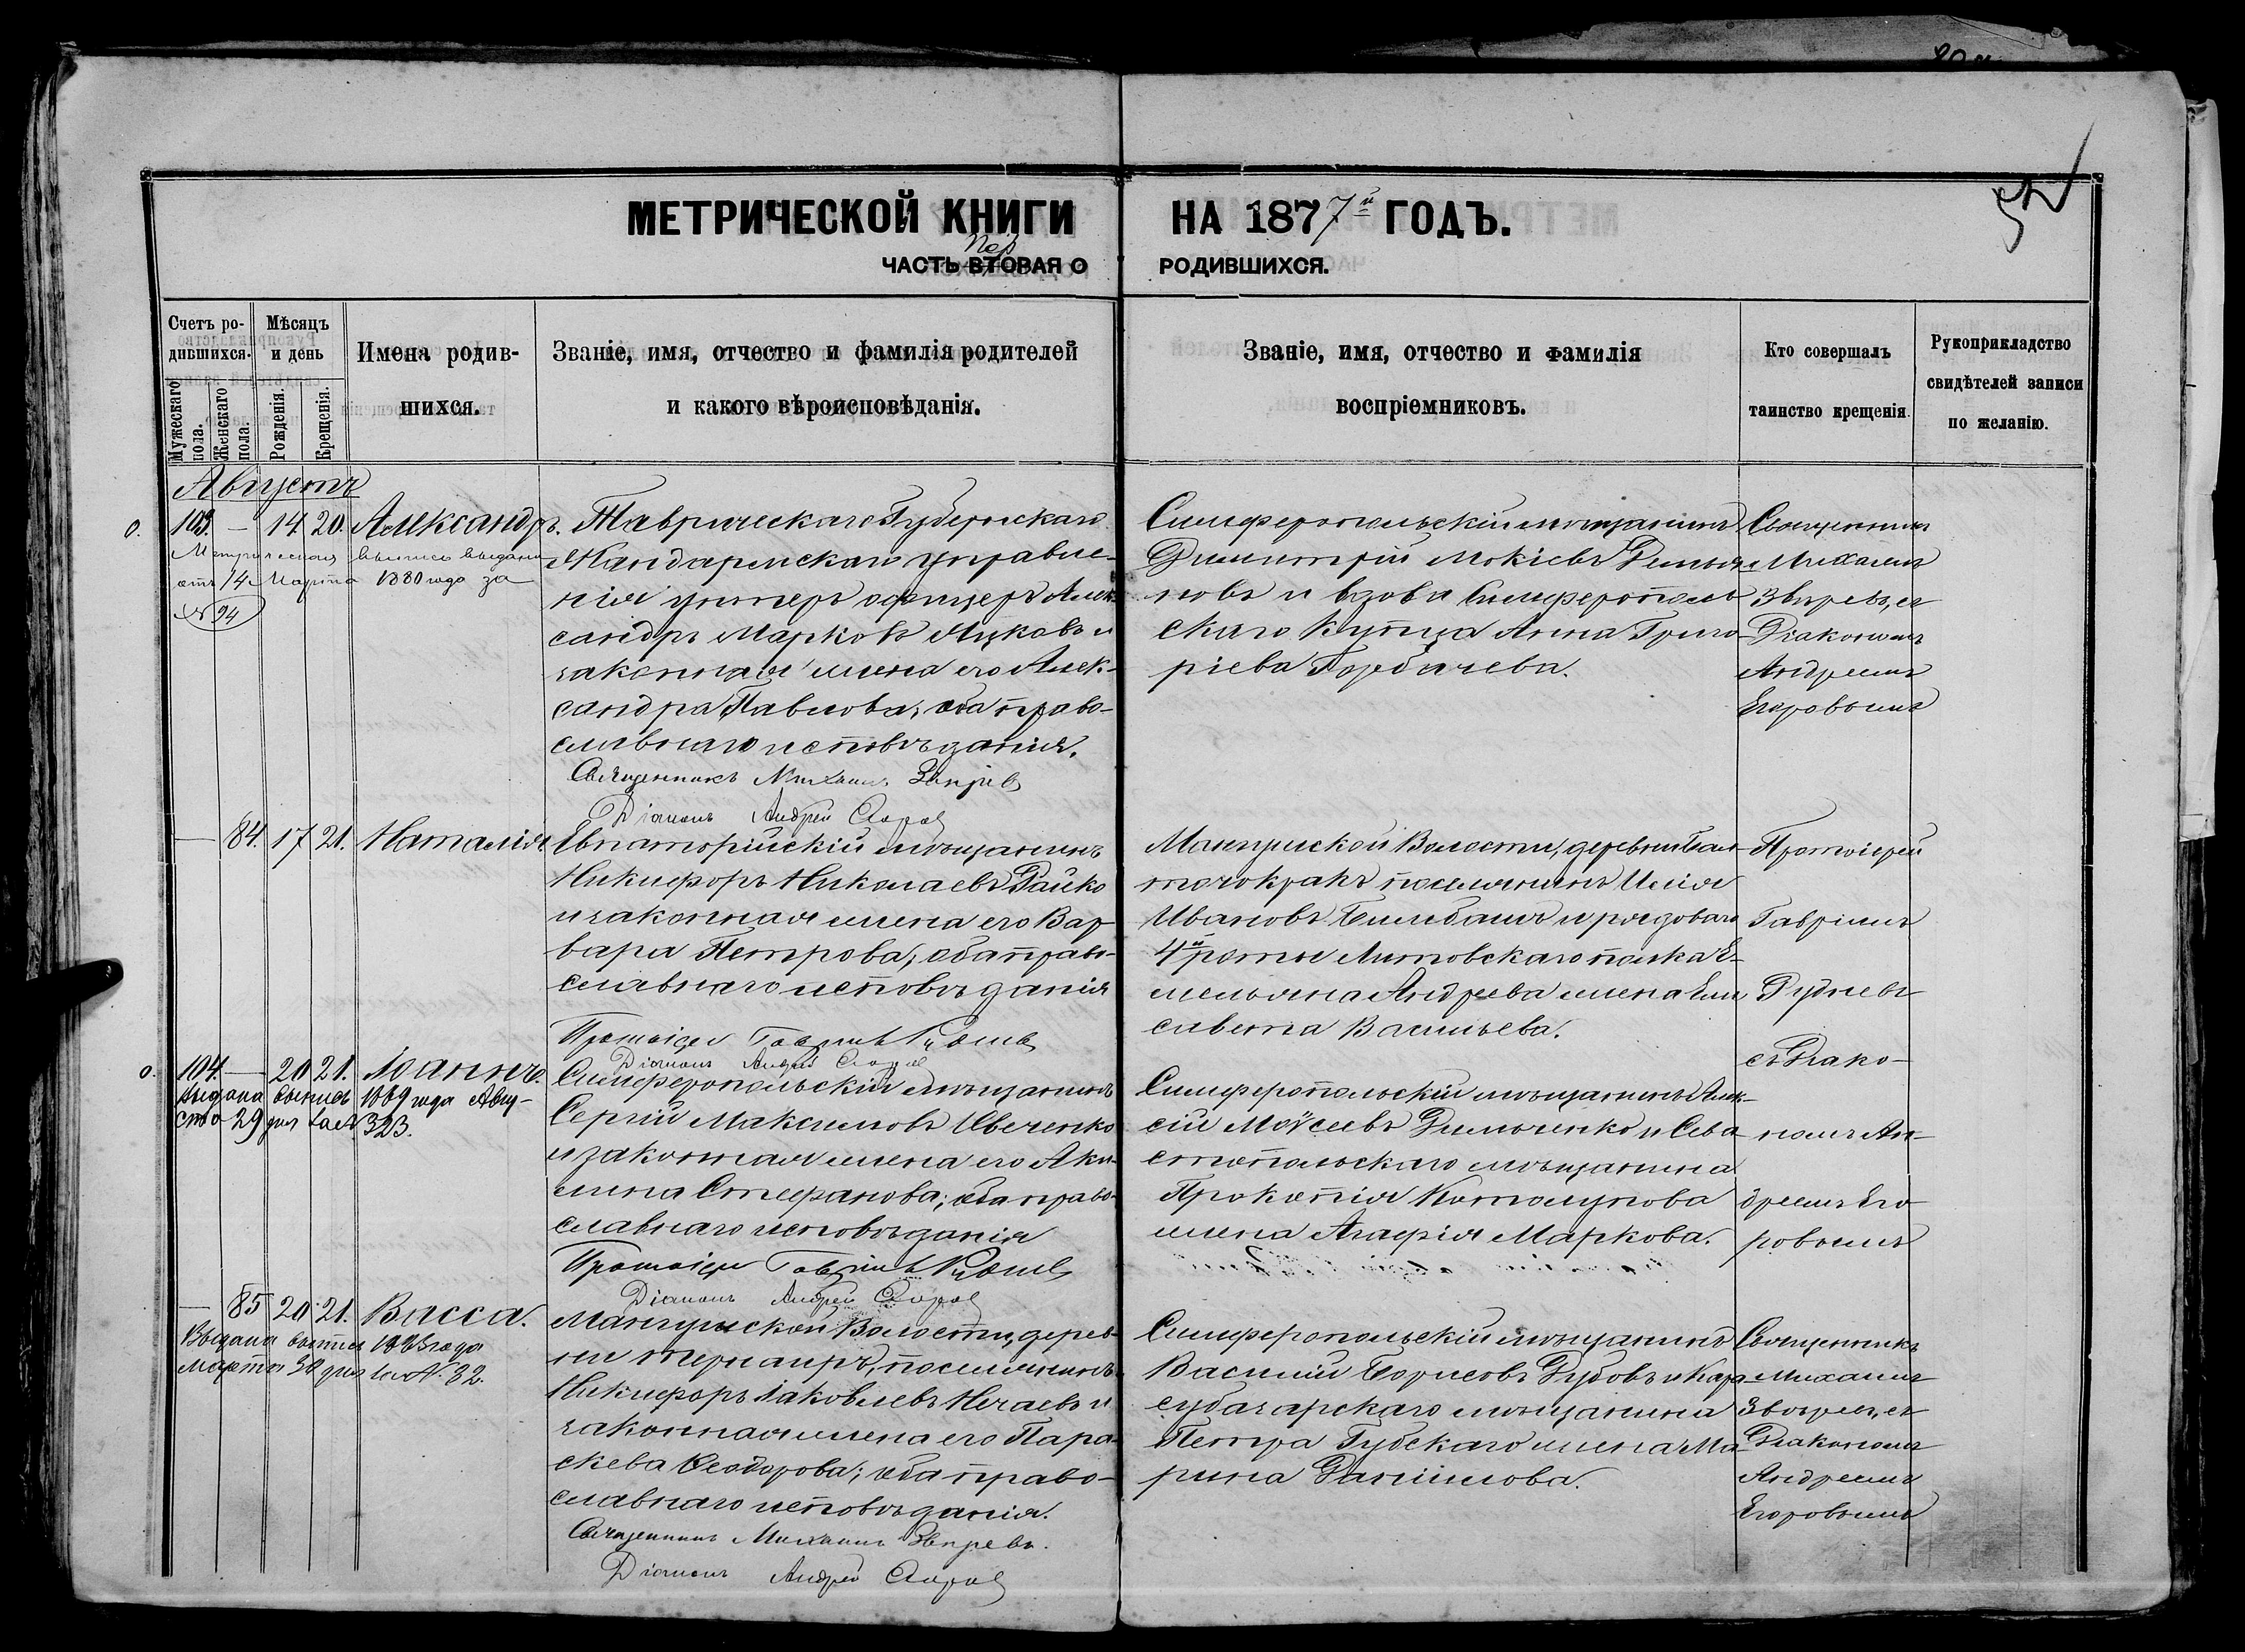 52
МЕТРИЧЕСКОЙ КНИГИ НА 1877й ГОДЪ.
пер
ЧАСТЬ ВТОРАЯ О РОДИВШИХСЯ.
Счетъ ро-
дившихся.
Мужескаго пола.
Женскаго пола.
Мѣсяцъ
и день
Рожденія.
Крещенія.
Имена родив-
шихся.
Званіе, имя, отчество и фамилія родителей
и какого вѣроисповѣданія.
Званіе, имя, отчество и фамилія
воспріемниковъ.
Кто совершалъ
таинство крещенія.
Рукоприкладство
свидѣтелей записи
по желанію.
Августъ
103. — 14 20. Александръ.
Метрическая выпись выдана
отъ 14 Марта 1880 года за
№ 94
Таврическаго Губернскаго
Жандармскаго управле-
нія унтеръ офицеръ Алек-
сандръ Марковъ Яцковъ и
законная жена его Алек-
сандра Павлова; оба право-
славнаго исповѣданія.
Священникъ Михаилъ Звѣревъ
Діаконъ Андрей Егоровъ
Симферопольскій мѣщанинъ
Димитрій Мокіевъ
и вдова Симферополь
скаго Купца Анна Григо-
ріева Горбачева.
Священникъ
Михаилъ
Звѣревъ, съ
Діакономъ
Андреемъ
Егоровымъ
— 84. 17 21. Наталія.
Евпаторійскій мѣщанинъ
Никифоръ Николаевъ Райко
и законная жена его Вар
вара Петрова; оба право-
славнаго исповѣданія
Протоіерей Гавріилъ Рудневъ
Діаконъ Андрей Егоровъ
Мангушской Волости, деревни
поселянинъ Илія
Ивановъ и рядоваго
4й роты Литовскаго полка Е-
мельяна Андреева жена Ели
савета Васильева.
Протоіерей
Гавріилъ
Рудневъ
съ Діако-
номъ Ан-
дреемъ Его
ровымъ
104. — 20 21. Іоаннъ.
Выдана выпись 1889 года Авгу-
ста 29 дня за № 323.
Симферопольскій мѣщанинъ
Сергій Максимовъ Ивченко
и законная жена его Аки-
лина Стефанова; оба право-
славнаго исповѣданія
Протоіерей Гавріилъ Рудневъ
Діаконъ Андрей Егоровъ
Симферопольскій мѣщанинъ Алек-
сій Моѵсеевъ и Сева
стопольскаго мѣщанина
Прокопія
жена Агафія Маркова.
— 85 20 21. Васса.
Выдана выпись года
Марта 30 дня за № 32.
Мангушской Волости, дерев-
ни поселянинъ
Никифоръ Іаковлевъ Нечаевъ и
законная жена его Пара-
скева Ѳеодорова; оба право-
славнаго исповѣданія.
Священникъ Михаилъ Звѣревъ.
Діаконъ Андрей Егоровъ
Симферопольскій мѣщанинъ
Василій Борисовъ Зубовъ и Кара
субазарскаго мѣщанина
Петра Губскаго жена Ма
рина Даніилова.
Священникъ
Михаилъ
Звѣревъ, съ
Діакономъ
Андреемъ
Егоровымъ